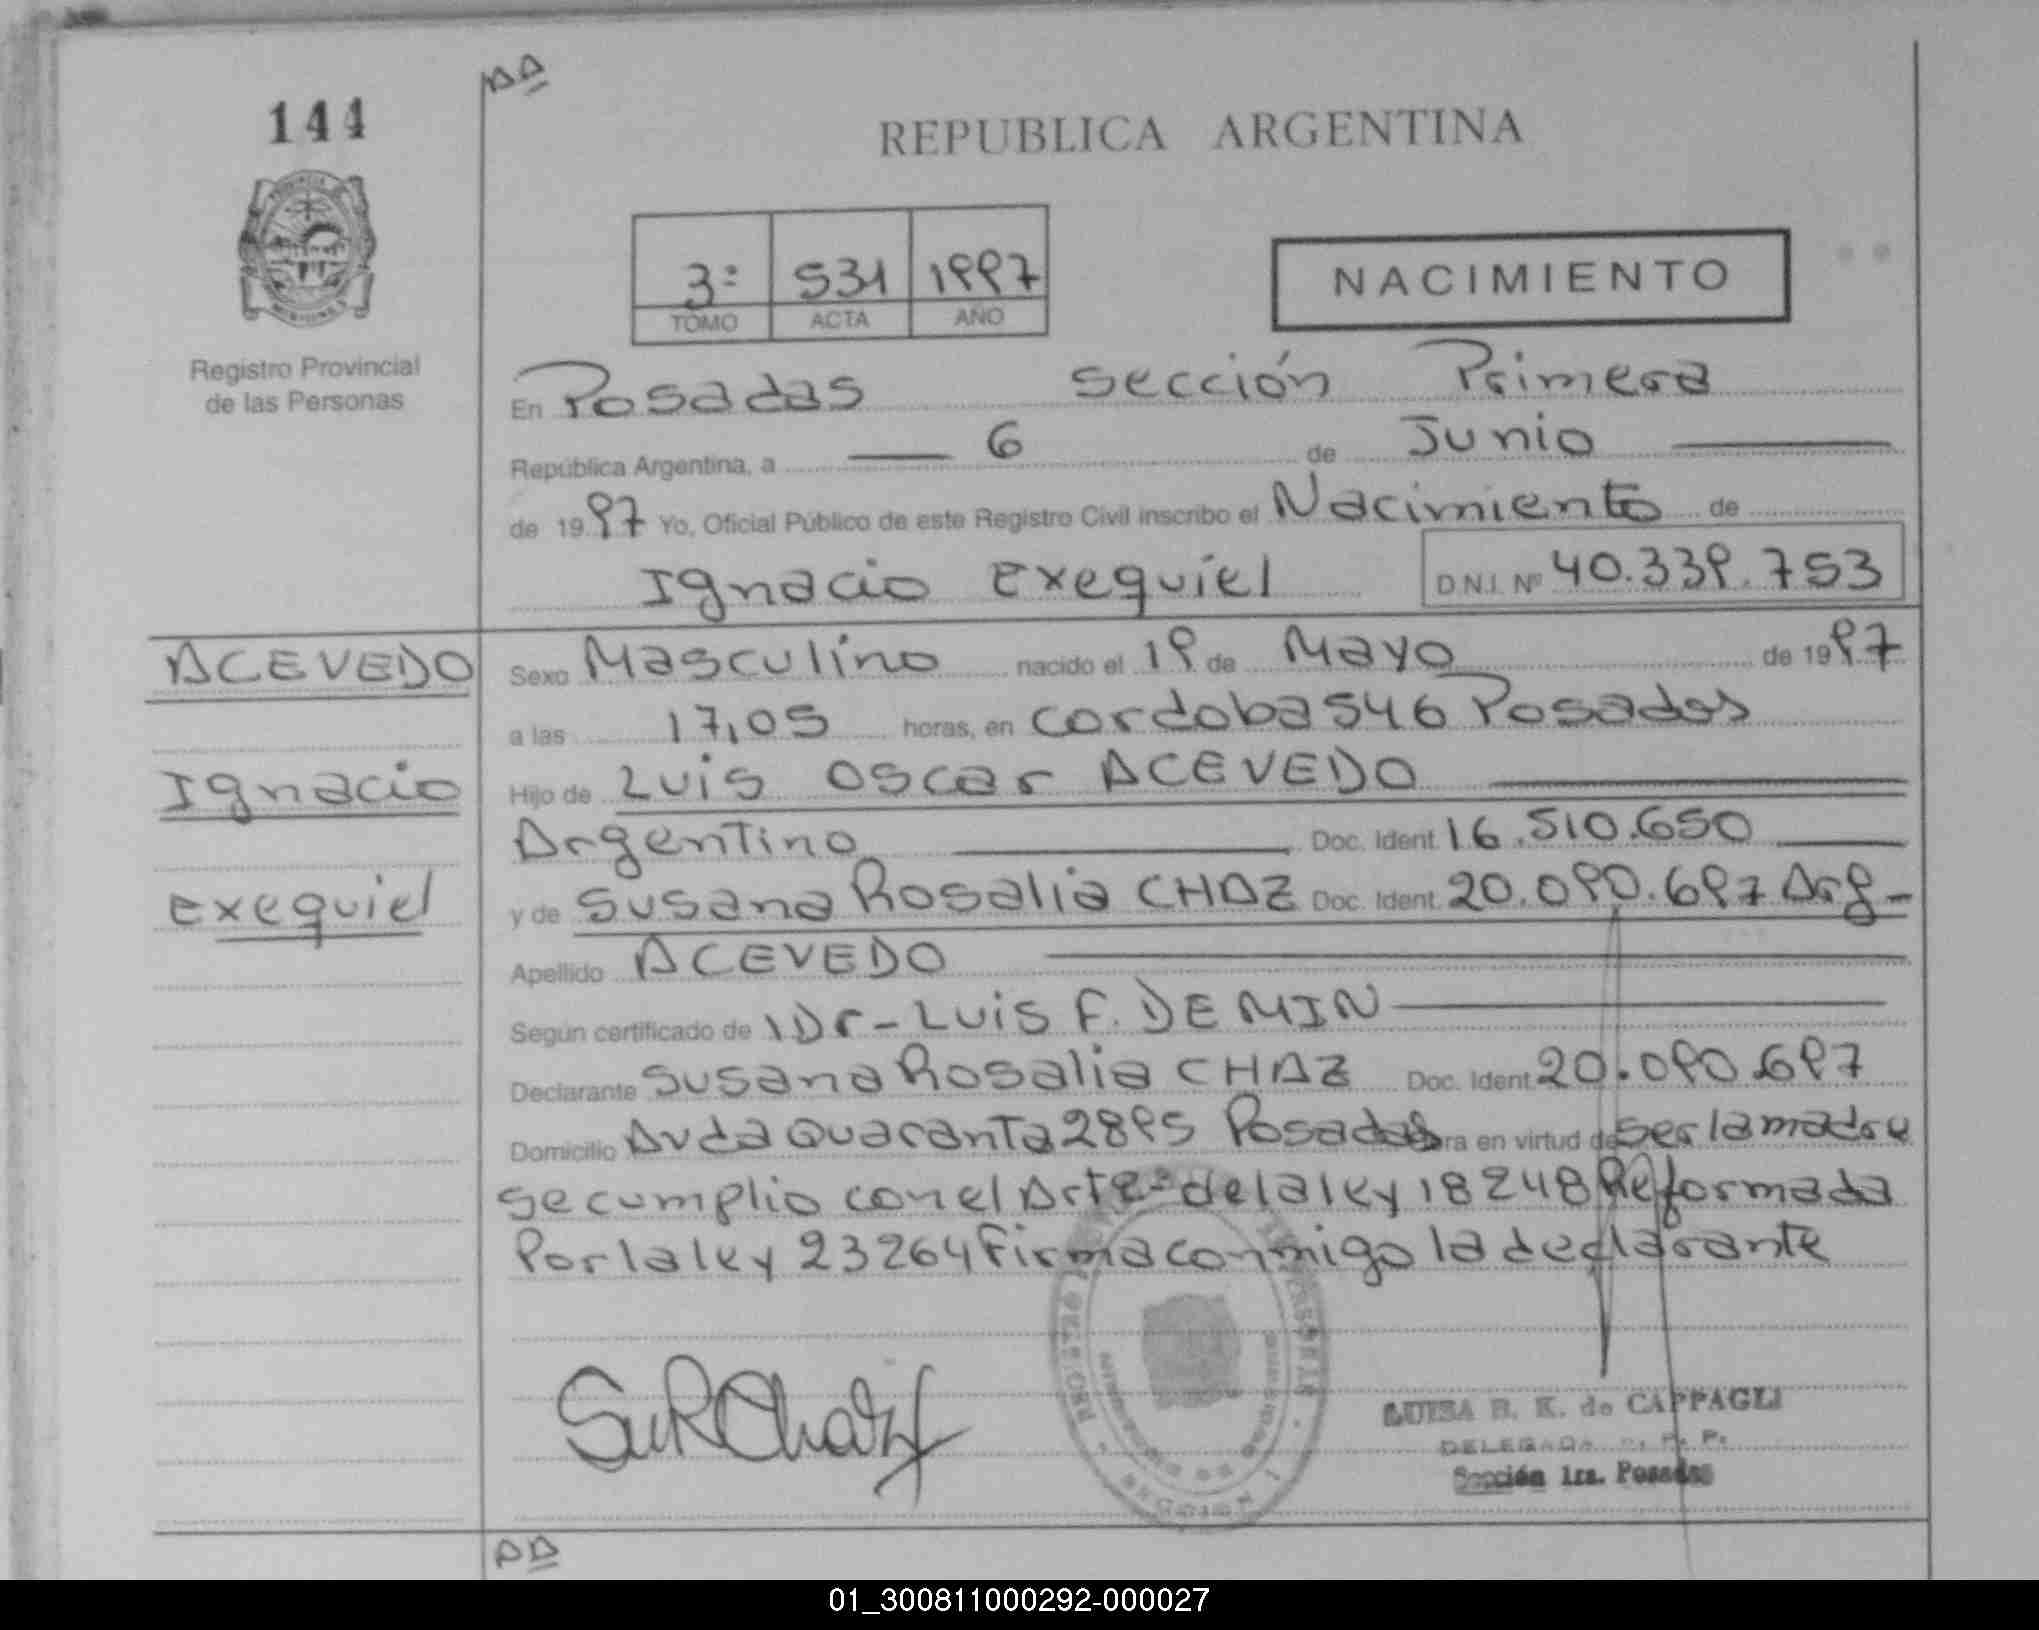 144
REPUBLICA ARGENTINA
3º 531 1997
TOMO ACTA AÑO
NACIMIENTO
Registro Provincial
de las Personas
En Posadas sección Primera
República Argentina, a 6 de Junio
de 1997 Yo, Oficial Público de este Registro Civil inscribo el Nacimiento de
Ignacio Exequiel D.N.I. Nº 40.339.753
ACEVEDO
Ignacio
Exequiel
Sexo Masculino nacido el 19 de Mayo de 1997
a las 17,05 horas, en Cordoba 546 Posadas
Hijo de Luis Oscar ACEVEDO
Argentino Doc. Ident. 16.510.650
y de Susana Rosalia CHAZ Doc. Ident. 20.090.697 Arg-
Apellido ACEVEDO
Según certificado de Dr- Luis F. DEMIN
Declarante Susana Rosalia CHAZ Doc. Ident. 20.090.697
Domicilio Avda Quaranta 2895 Posadas en virtud de ser la madre
se cumplio con el Art 2º de la ley 18248 Reformada
Por la ley 23264 Firma conmigo la declarante
LUISA B. K. de CAPPAGLI
DELEGADA R. P. P.
Sección 1ra. Posadas
01_300811000292-000027